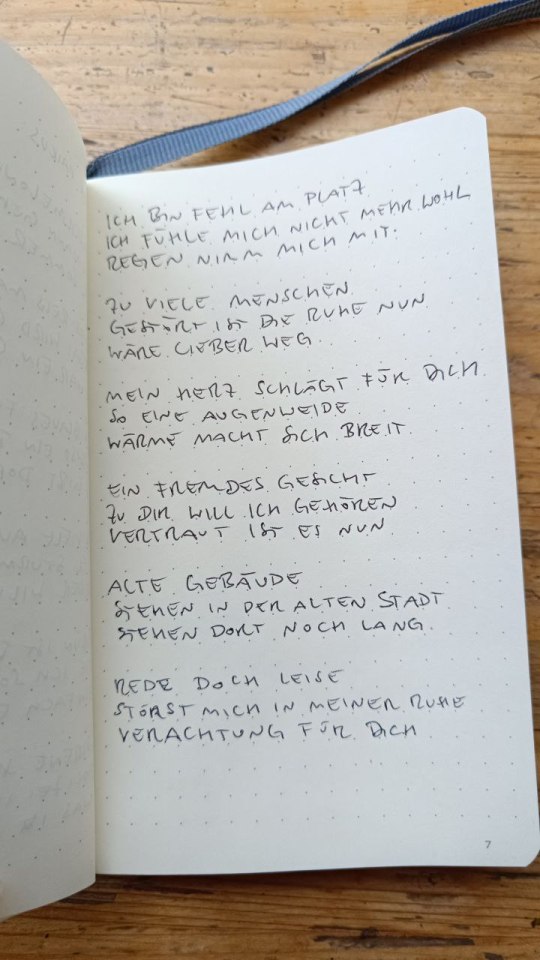 ICH BIN FEHL AM PLATZ
ICH FÜHLE MICH NICHT MEHR WOHL
REGEN NIMM MICH MIT.
ZU VIELE MENSCHEN
GESTÖRT IST DIE RUHE NUN
WÄRE LIEBER WEG.
MEIN HERZ SCHLÄGT FÜR DICH
SO EINE AUGENWEIDE
WÄRME MACHT SICH BREIT
EIN FREMDES GESICHT
ZU DIR WILL ICH GEHÖREN
VERTRAUT IST ES NUN
ALTE GEBÄUDE
STEHEN IN DER ALTEN STADT
STEHEN DORT NOCH LANG.
REDE DOCH LEISE
STÖRST MICH IN MEINER RUHE
VERACHTUNG FÜR DICH
7